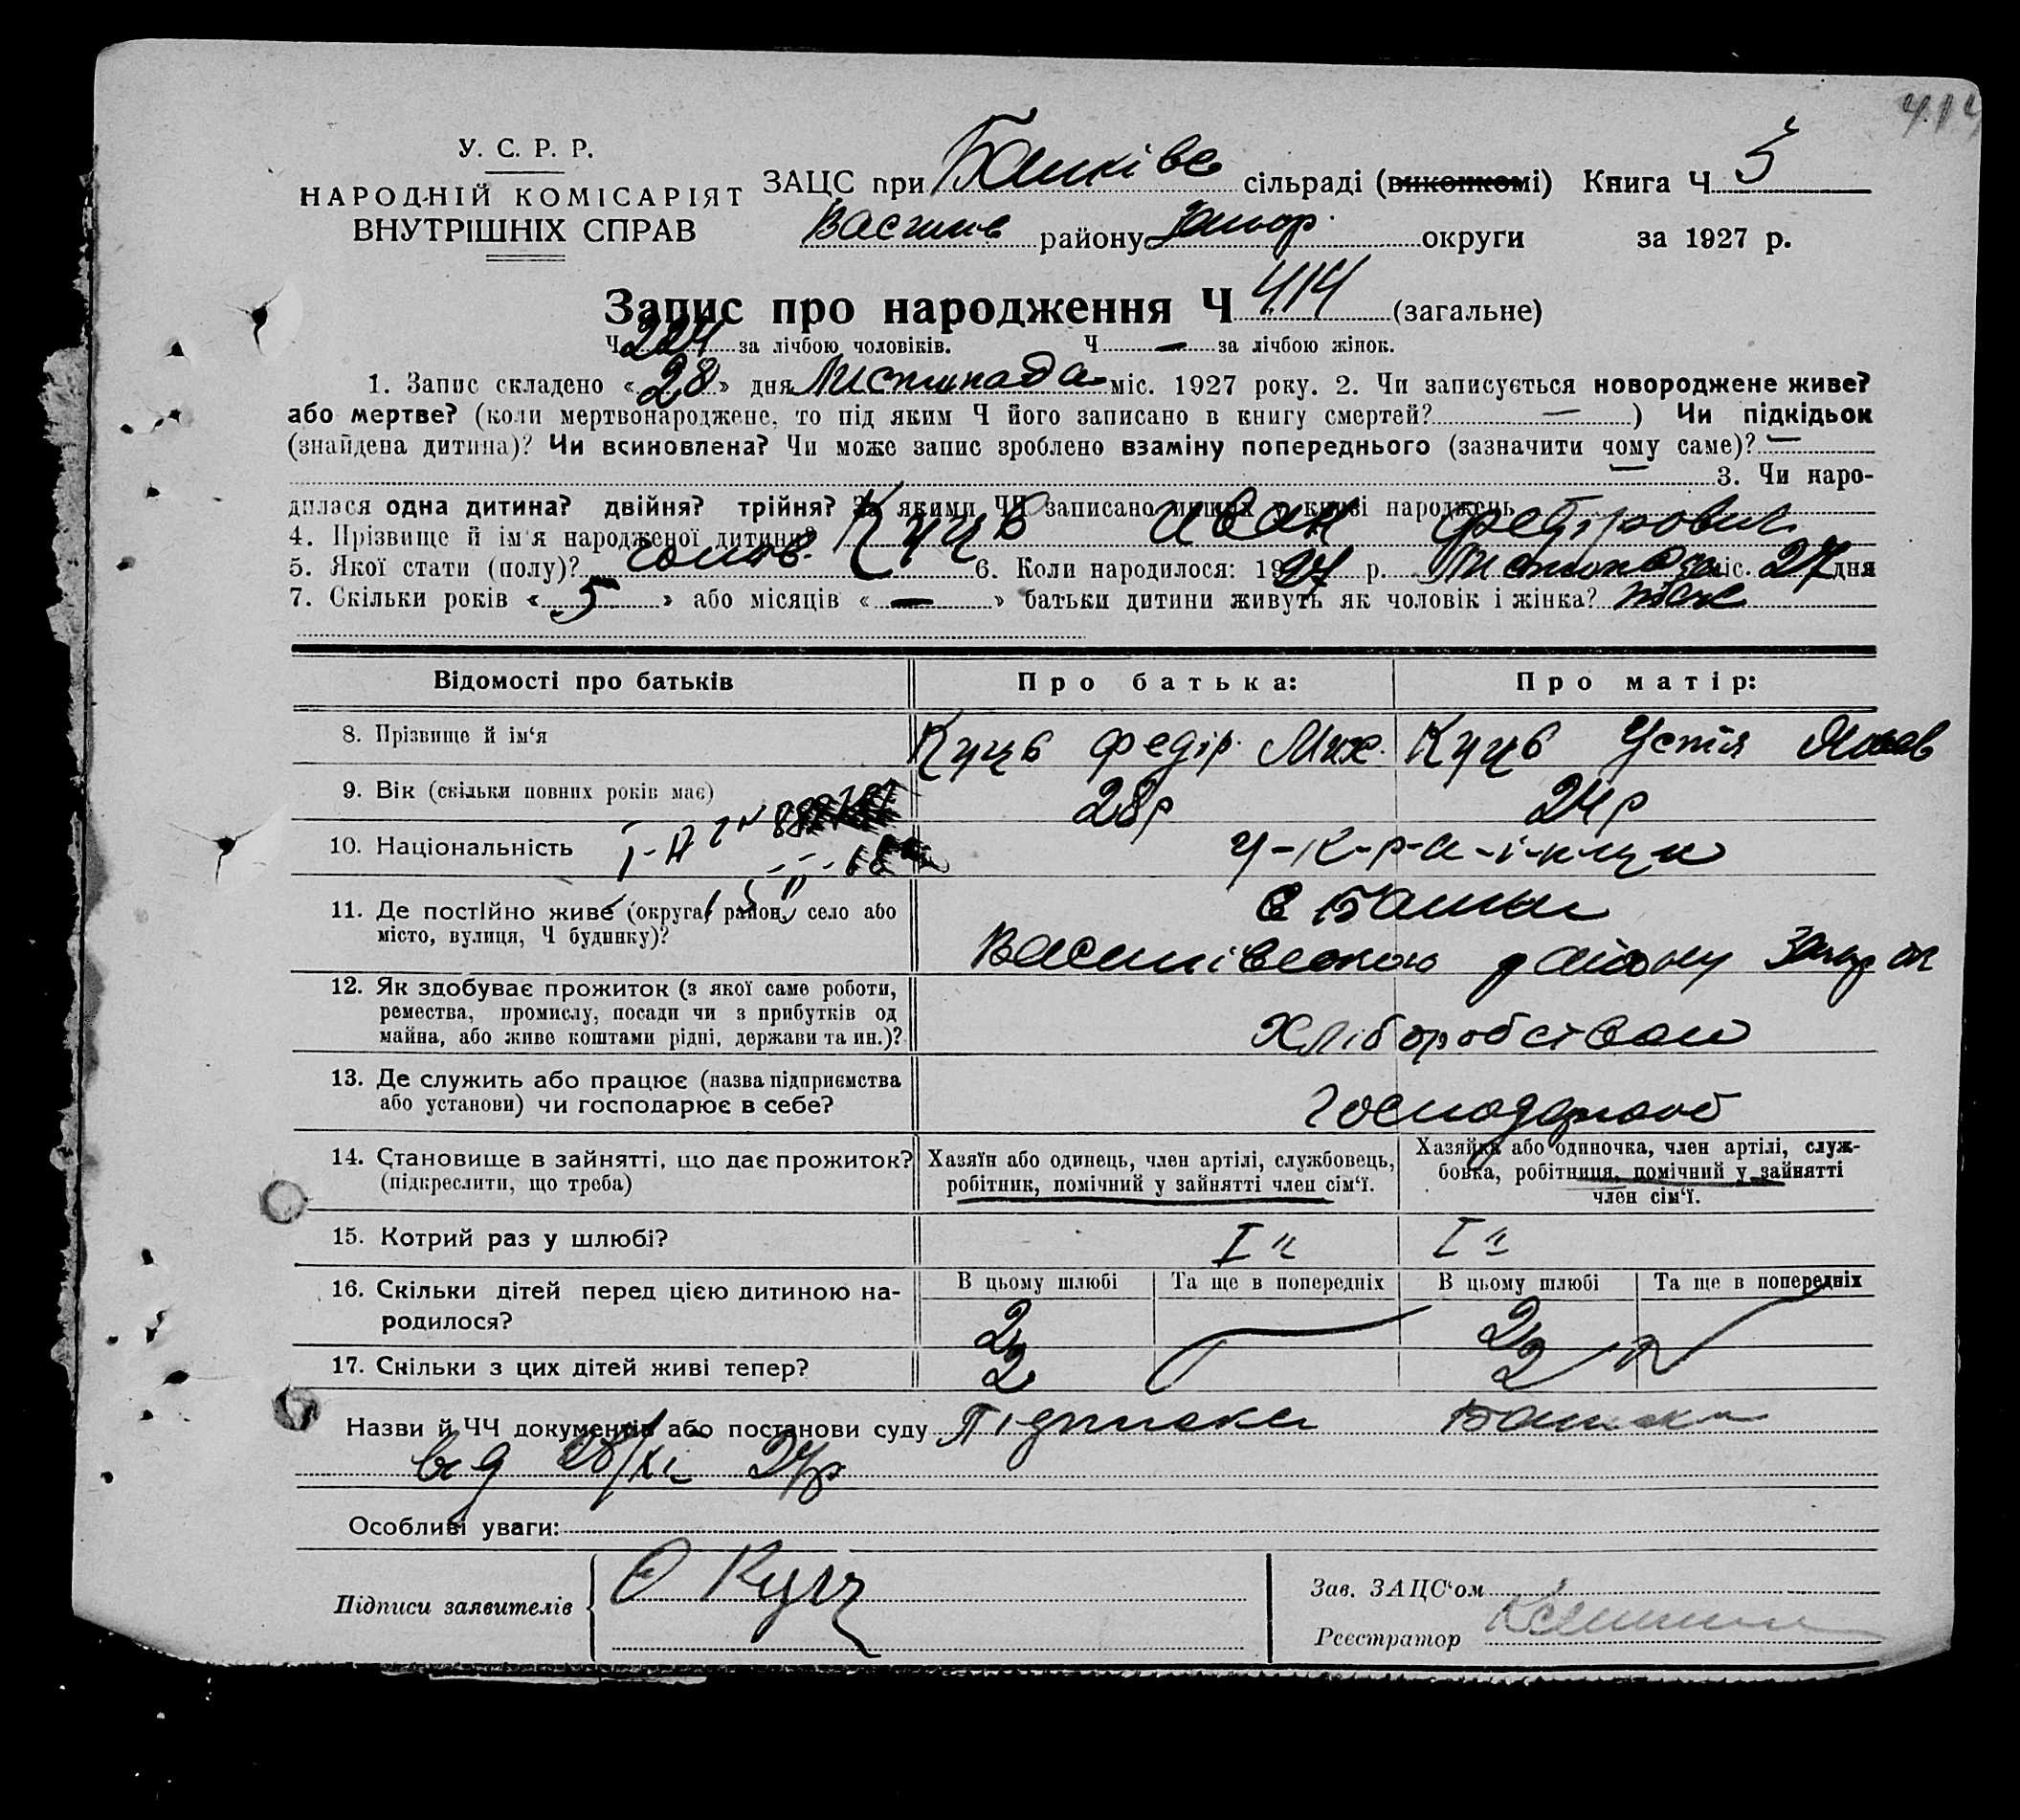 414
У. С. Р. Р.
НАРОДНІЙ КОМІСАРІЯТ
ВНУТРІШНІХ СПРАВ
ЗАЦС при сільраді (виконкомі) Книга Ч 5
Васил району Запор. округи за 1927 р.
Запис про народження Ч 414 (загальне)
Ч 224 за лічбою чоловіків. Ч — за лічбою жінок.
1. Запис складено «28» дня Листопада міс. 1927 року. 2. Чи записується новороджене живе?
або мертве? (коли мертвонароджене, то під яким Ч його записано в книгу смертей? —) Чи підкідьок
(знайдена дитина)? Чи всиновлена? Чи може запис зроблено взаміну попереднього (зазначити чому саме)? —
— 3. Чи наро-
дилася одна дитина? двійня? трійня? За якими ЧЧ записано инших у книзі народжень
4. Прізвище й ім'я народженої дитини? Куць Иван Федірович
5. Якої стати (полу)? чолов. 6. Коли народилося: 1927 р. Листопада міс. 27 дня
7. Скільки років «5» або місяців «—» батьки дитини живуть як чоловік і жінка?
Відомості про батьків Про батька: Про матір:
8. Прізвище й ім'я Куць Федір. Мих. Куць Устія
9. Вік (скільки повних років має) 28р 24р
10. Національність У-к-р-а-ї-нци
11. Де постійно живе (округа, район, село або
місто, вулиця, Ч будинку)?
с
Василівского району Запор ок
12. Як здобуває прожиток (з якої саме роботи,
ремества, промислу, посади чи з прибутків од
майна, або живе коштами рідні, держави та ин.)?
Хліборобством
13. Де служить або працює (назва підприємства
або установи) чи господарює в себе?
14. Становище в зайнятті, що дає прожиток?
(підкреслити, що треба)
Хазяїн або одинець, член артілі, службовець,
робітник, помічний у зайнятті член сім'ї.
Хазяйка або одиночка, член артілі, служ-
бовка, робітниця, помічний у зайнятті
член сім'ї.
15. Котрий раз у шлюбі? I й I й
16. Скільки дітей перед цією дитиною на-
родилося?
В цьому шлюбі Та ще в попередніх В цьому шлюбі Та ще в попередніх
2 2
17. Скільки з цих дітей живі тепер? 2 2
Назви й ЧЧ документів або постанови суду Підписка
від 28/XI 27р
Особливі уваги:
Підписи заявителів Ф Куць
Зав. ЗАЦС'ом
Реєстратор